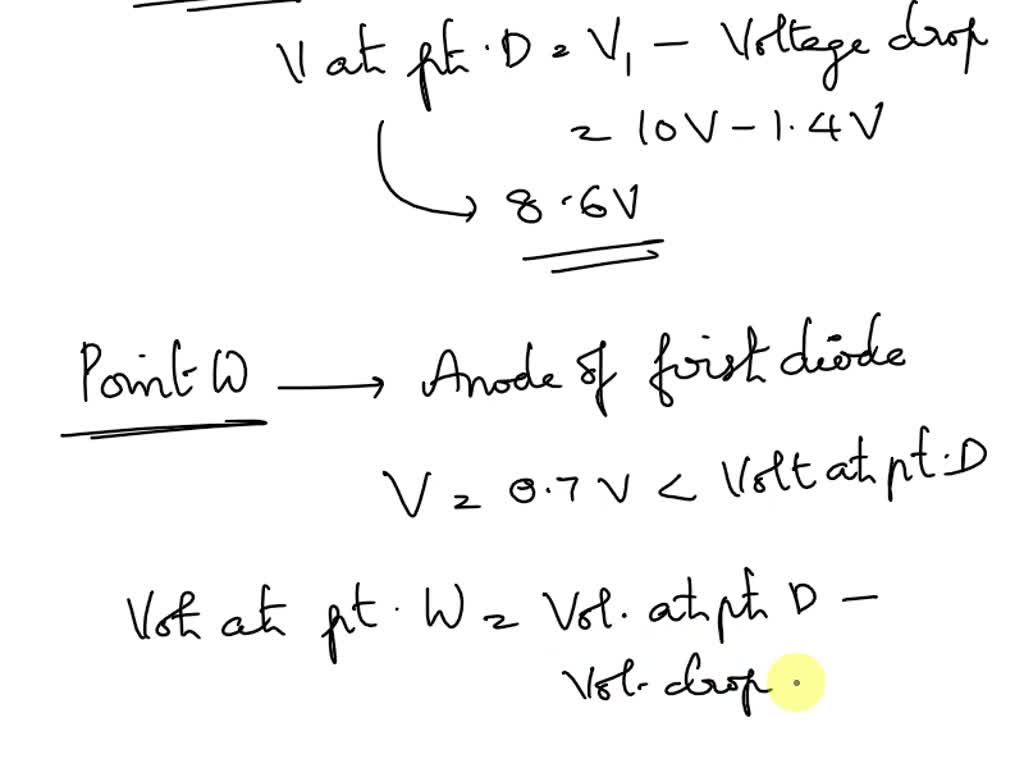 V at pt. D = V₁ - Voltage drop
= 10V - 1.4V
8.6V
Point W → Anode of first diode
V = 0.7 V < Volt at pt. D
Volt at pt. W = Vol. at pt D -
Vol. drop